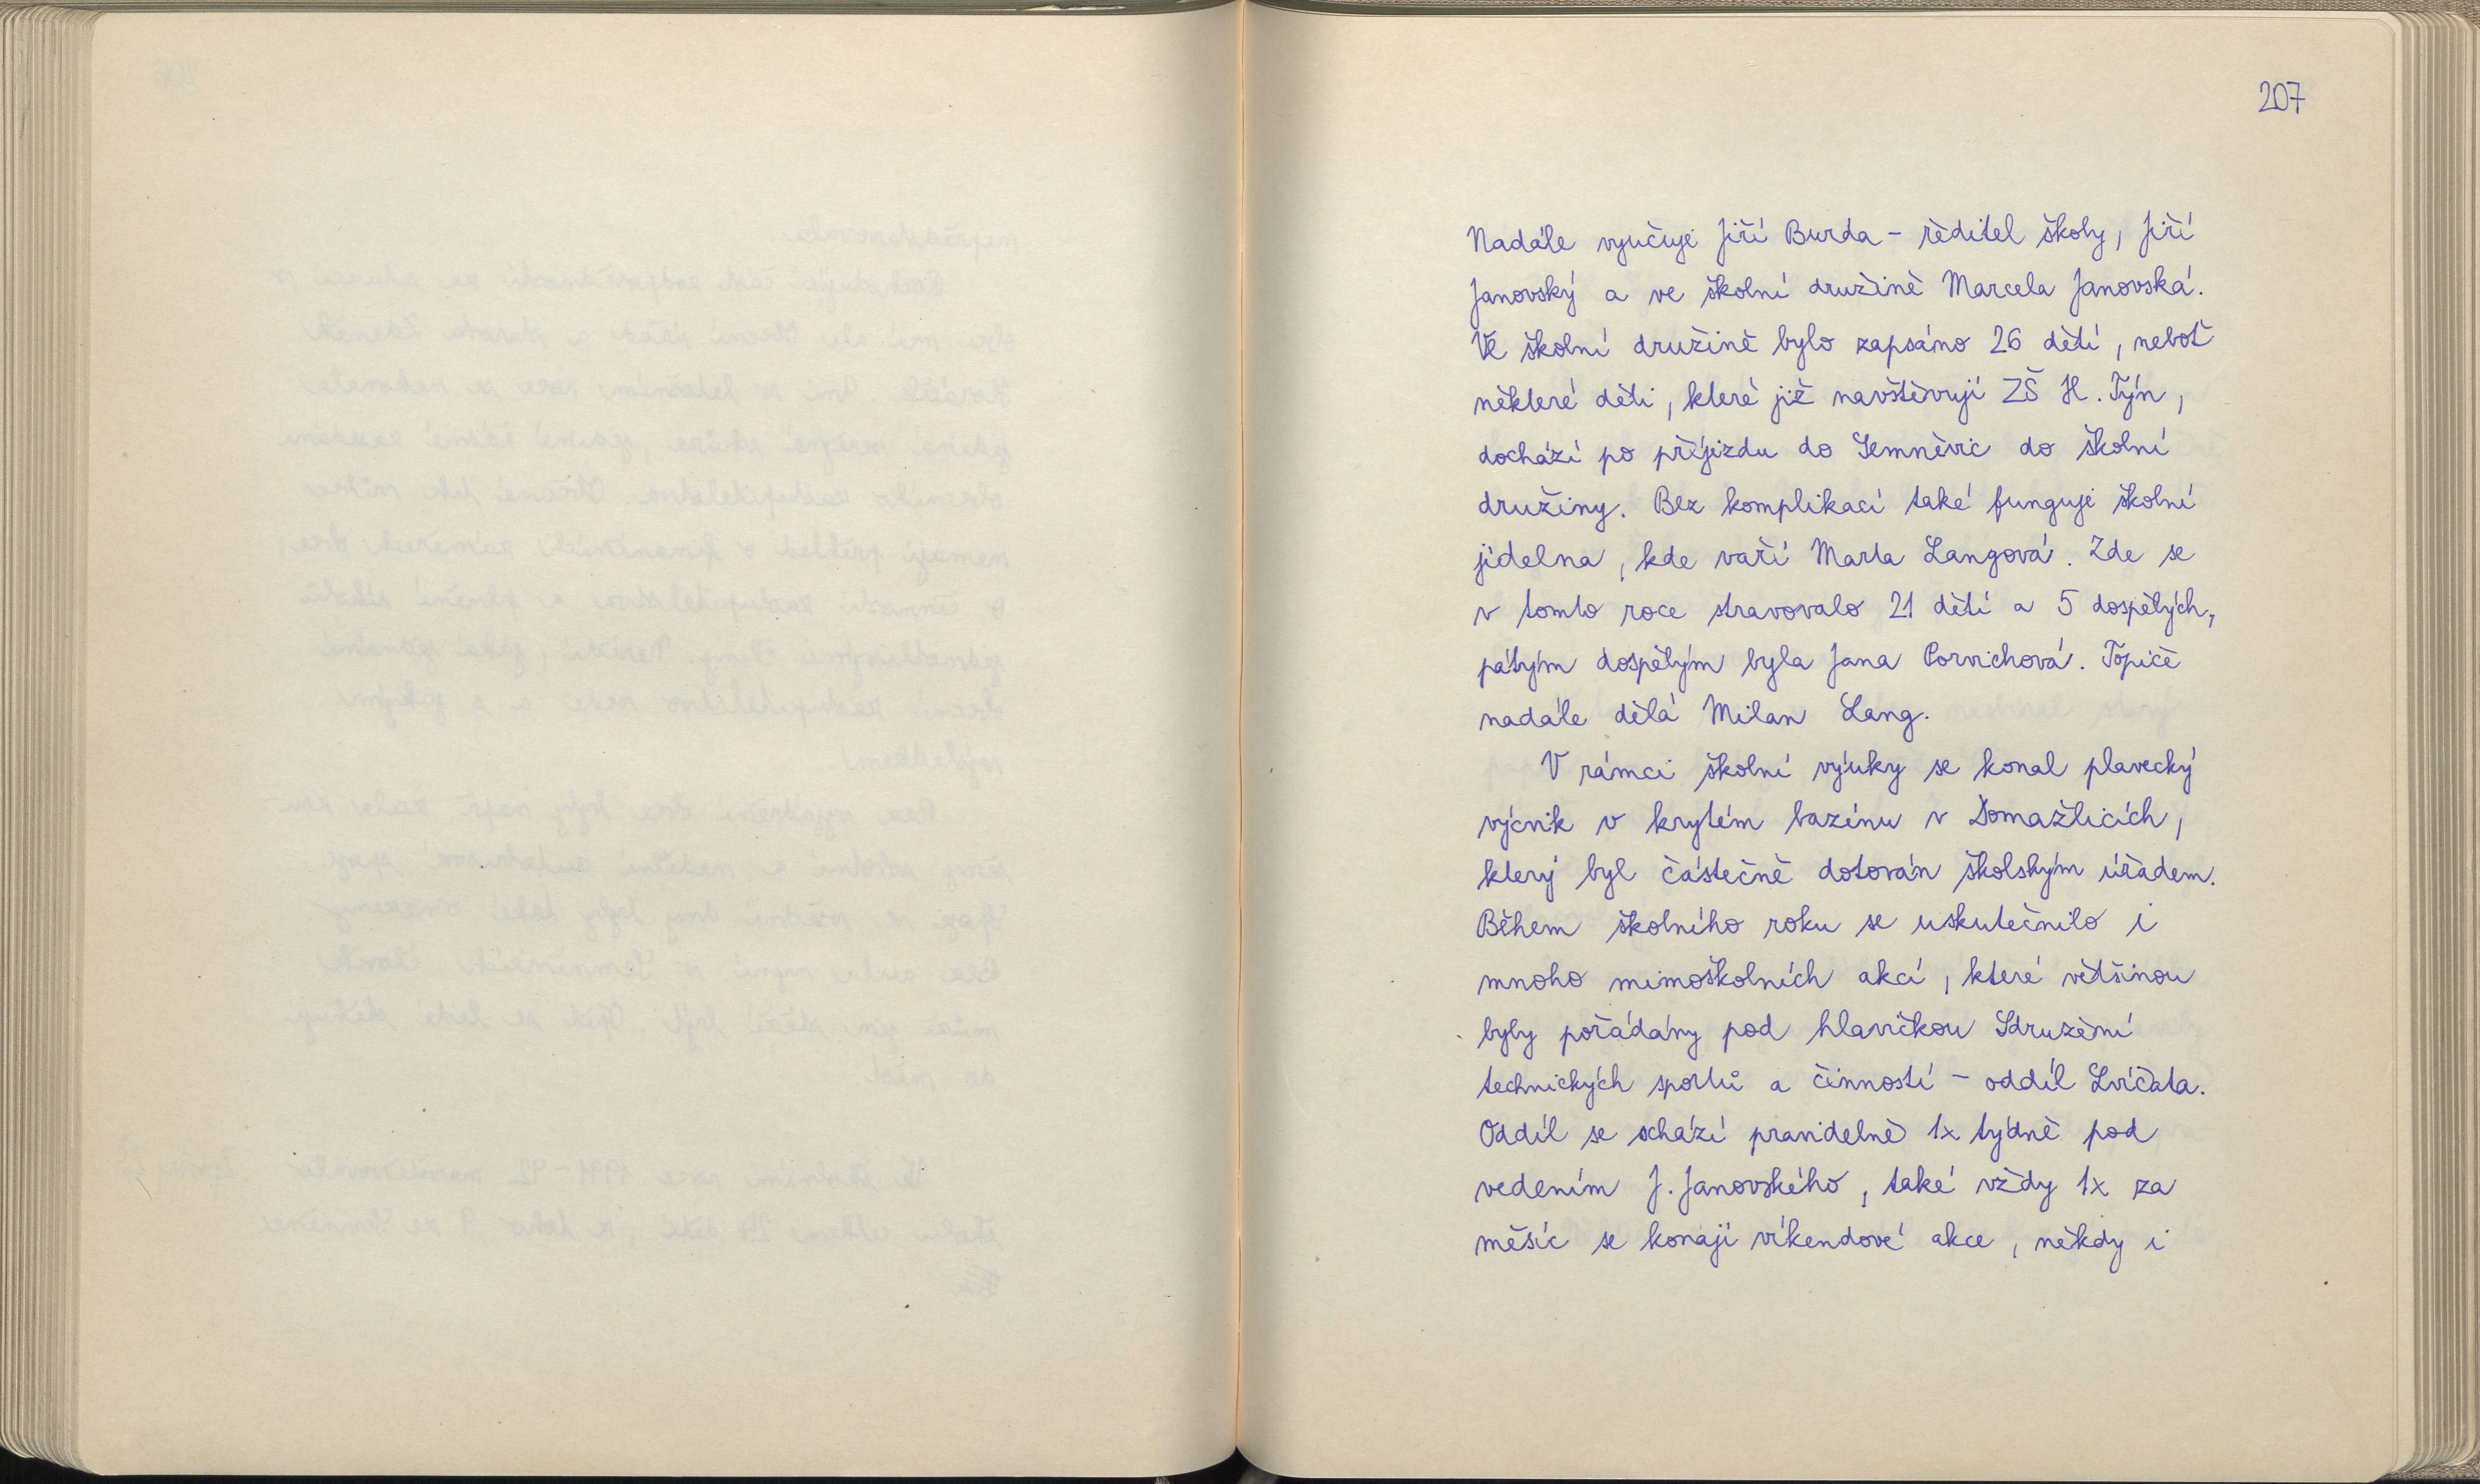 207
Nadále vyučuje Jiří Burda - ředitel školy, Jiří
Janovský a ve školní družině Marcela Janovská.
Ve školní družině bylo zapsáno 26 dětí, neboť
některé děti, které již navštěvují ZŠ H. Týn,
dochází po příjezdu do Semněvic do školní
družiny. Bez komplikací také funguje školní
jídelna, kde vaří Marta Langová. Zde se
v tomto roce stravovalo 21 dětí a 5 dospělých,
pátým dospělým byla Jana Porvichová. Topiče
nadále dělá Milan Lang.
V rámci školní výuky se konal plavecký
výcvik v krytém bazénu v Domažlicích,
který byl částečně dotován školským úřadem.
Během školního roku se uskutečnilo i
mnoho mimoškolních akcí, které většinou
byly pořádány pod hlavičkou Sdružení
technických sportů a činností - oddíl Lvíčata.
Oddíl se schází pravidelně 1x týdně pod
vedením J. Janovského, také vždy 1x za
měsíc se konají víkendové akce, někdy i